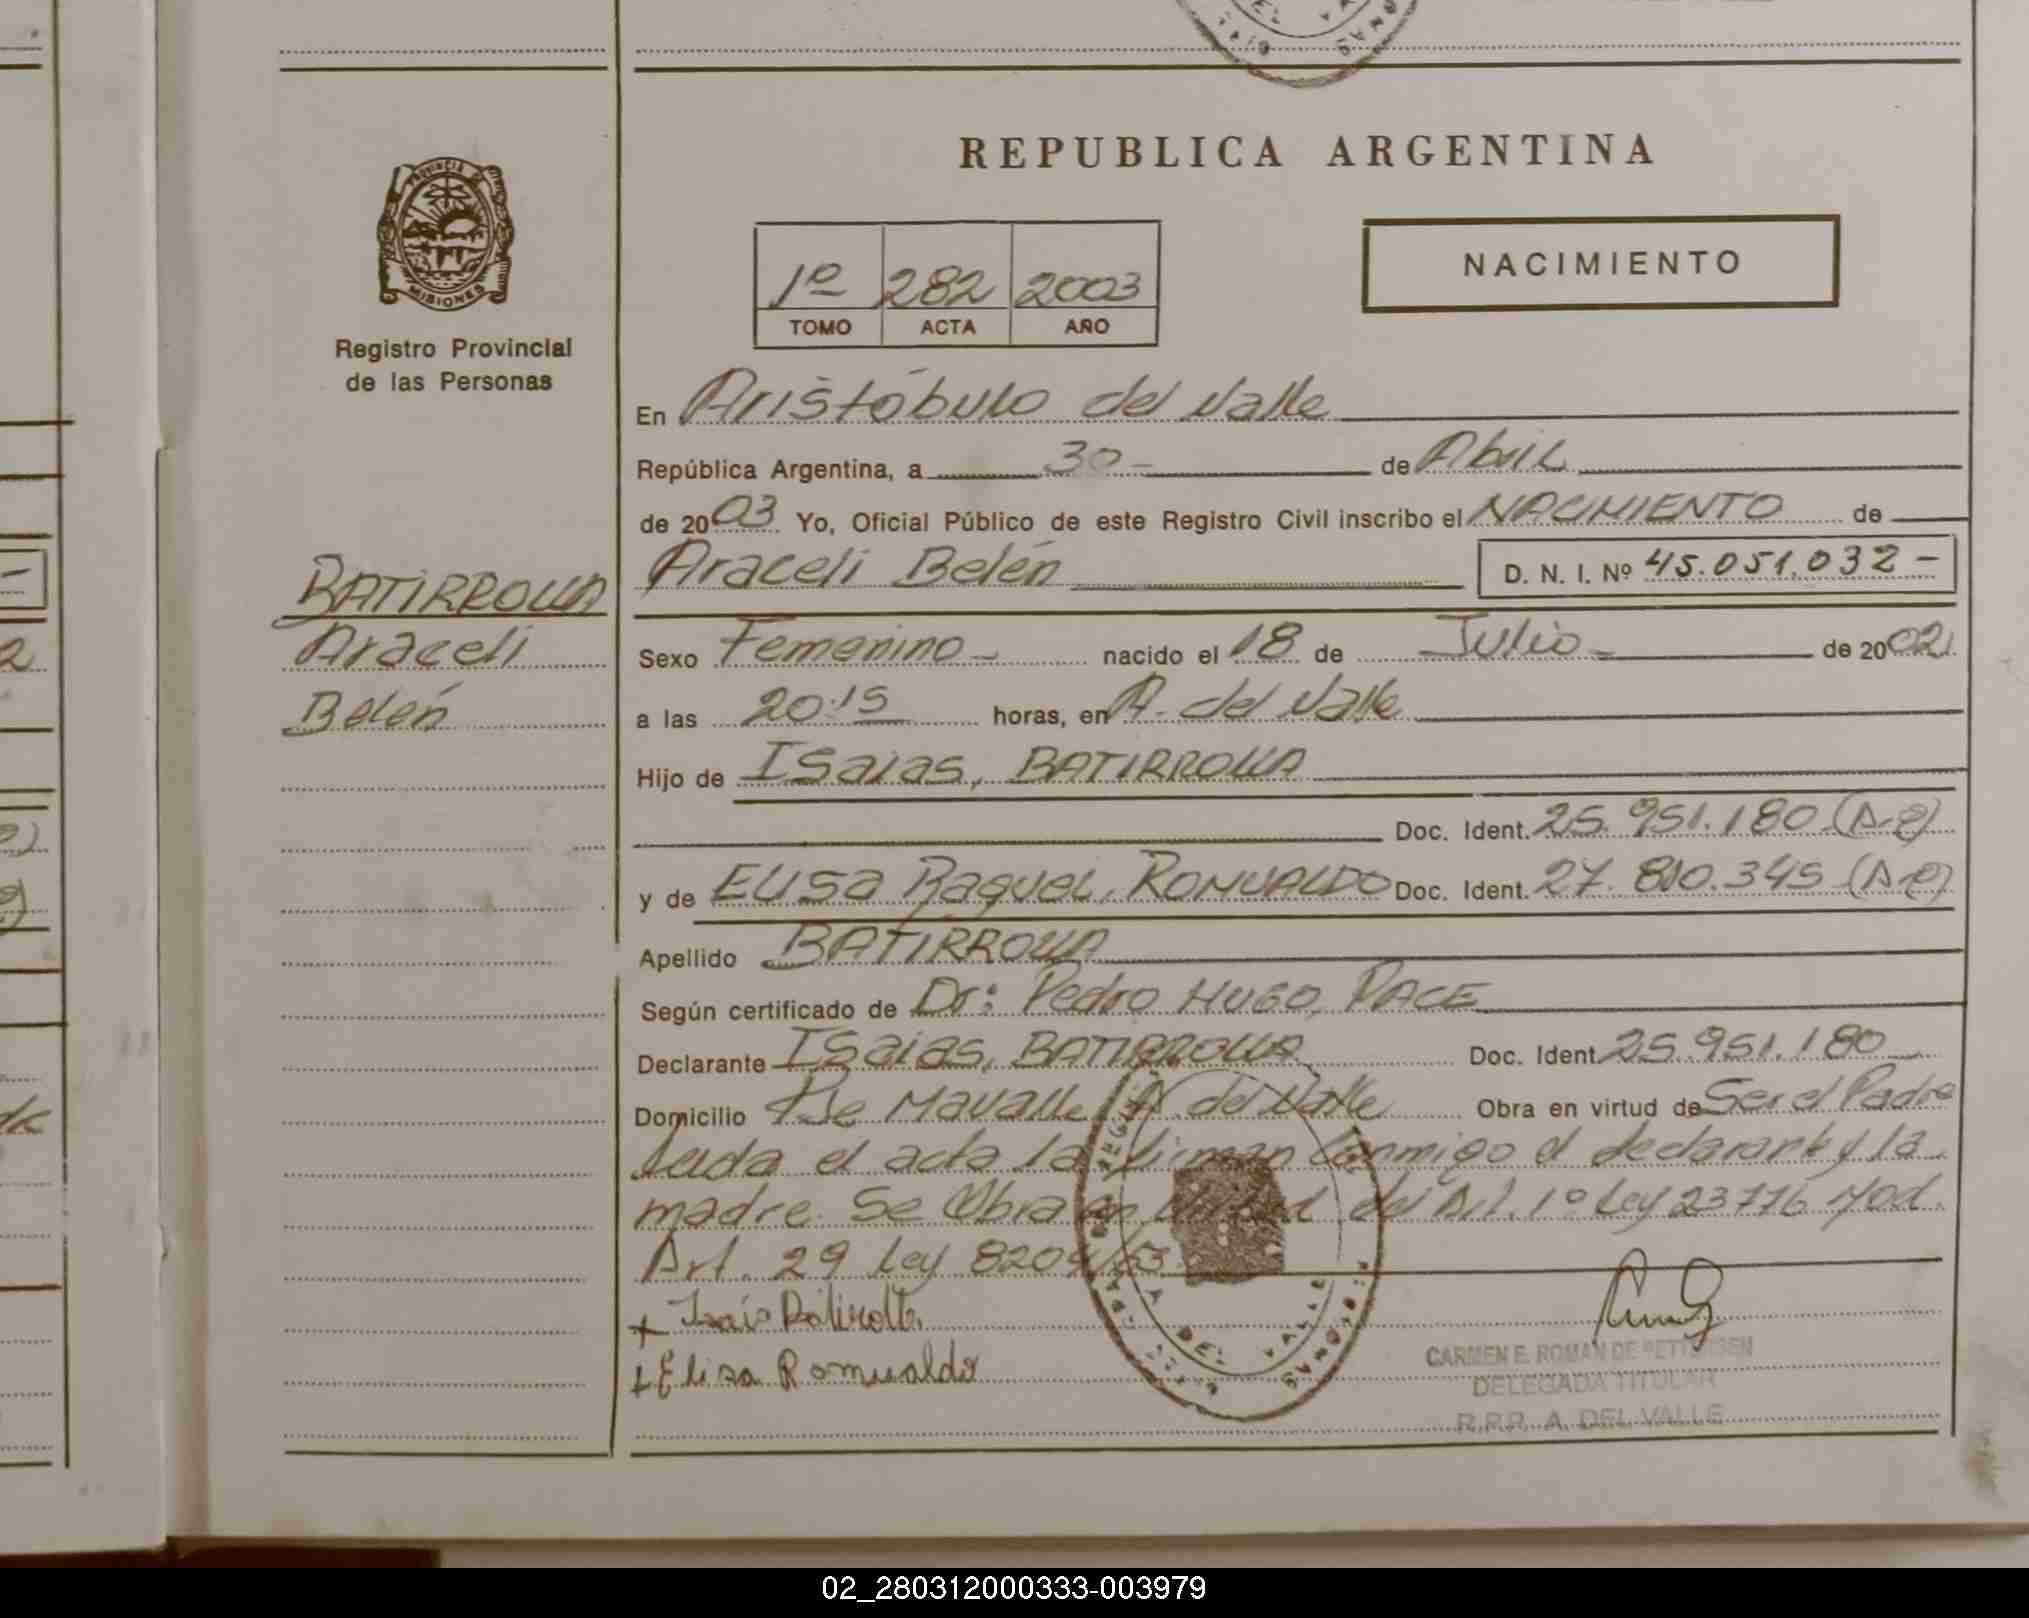 REPUBLICA ARGENTINA
PROVINCIA DE
MISIONES
Registro Provincial
de las Personas
1º 282 2003
TOMO ACTA AÑO
NACIMIENTO
En Aristóbulo del Valle
República Argentina, a 30- de Abril
de 2003 Yo, Oficial Público de este Registro Civil inscribo el NACIMIENTO de
BATIRROLLA
Araceli
Belén
Araceli Belén D. N. I. Nº 45.051.032-
Sexo Femenino- nacido el 18 de Julio- de 2002
a las 20:15 horas, en A. del Valle
Hijo de ISaias, BATIRROLLA
Doc. Ident. 25.951.180 (A-e)
y de ELISa Raquel, ROMUALDO Doc. Ident. 27.810.345 (A-e)
Apellido BATIRROLLA
Según certificado de Dr: Pedro HUGO, PACE
Declarante ISaias, BATIRROLLA Doc. Ident. 25.951.180
Domicilio A. del Valle Obra en virtud de Ser el Padre
Leida el acta la firman conmigo el declarante y la
madre. Se Obra en virtud del Art. 1º Ley 23776 Mod.
Art. 29 Ley 8204/63
+ Elisa Romualdo
DEL VALLE
MISIONES
CARMEN E. ROMAN DE PETTERSEN
DELEGADA TITULAR
R.P.P. A. DEL VALLE
02_280312000333-003979